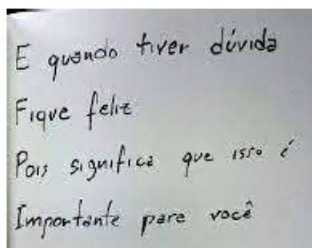 E quando tiver dúvida
Fique feliz
Pois significa que isso é
Importante para você